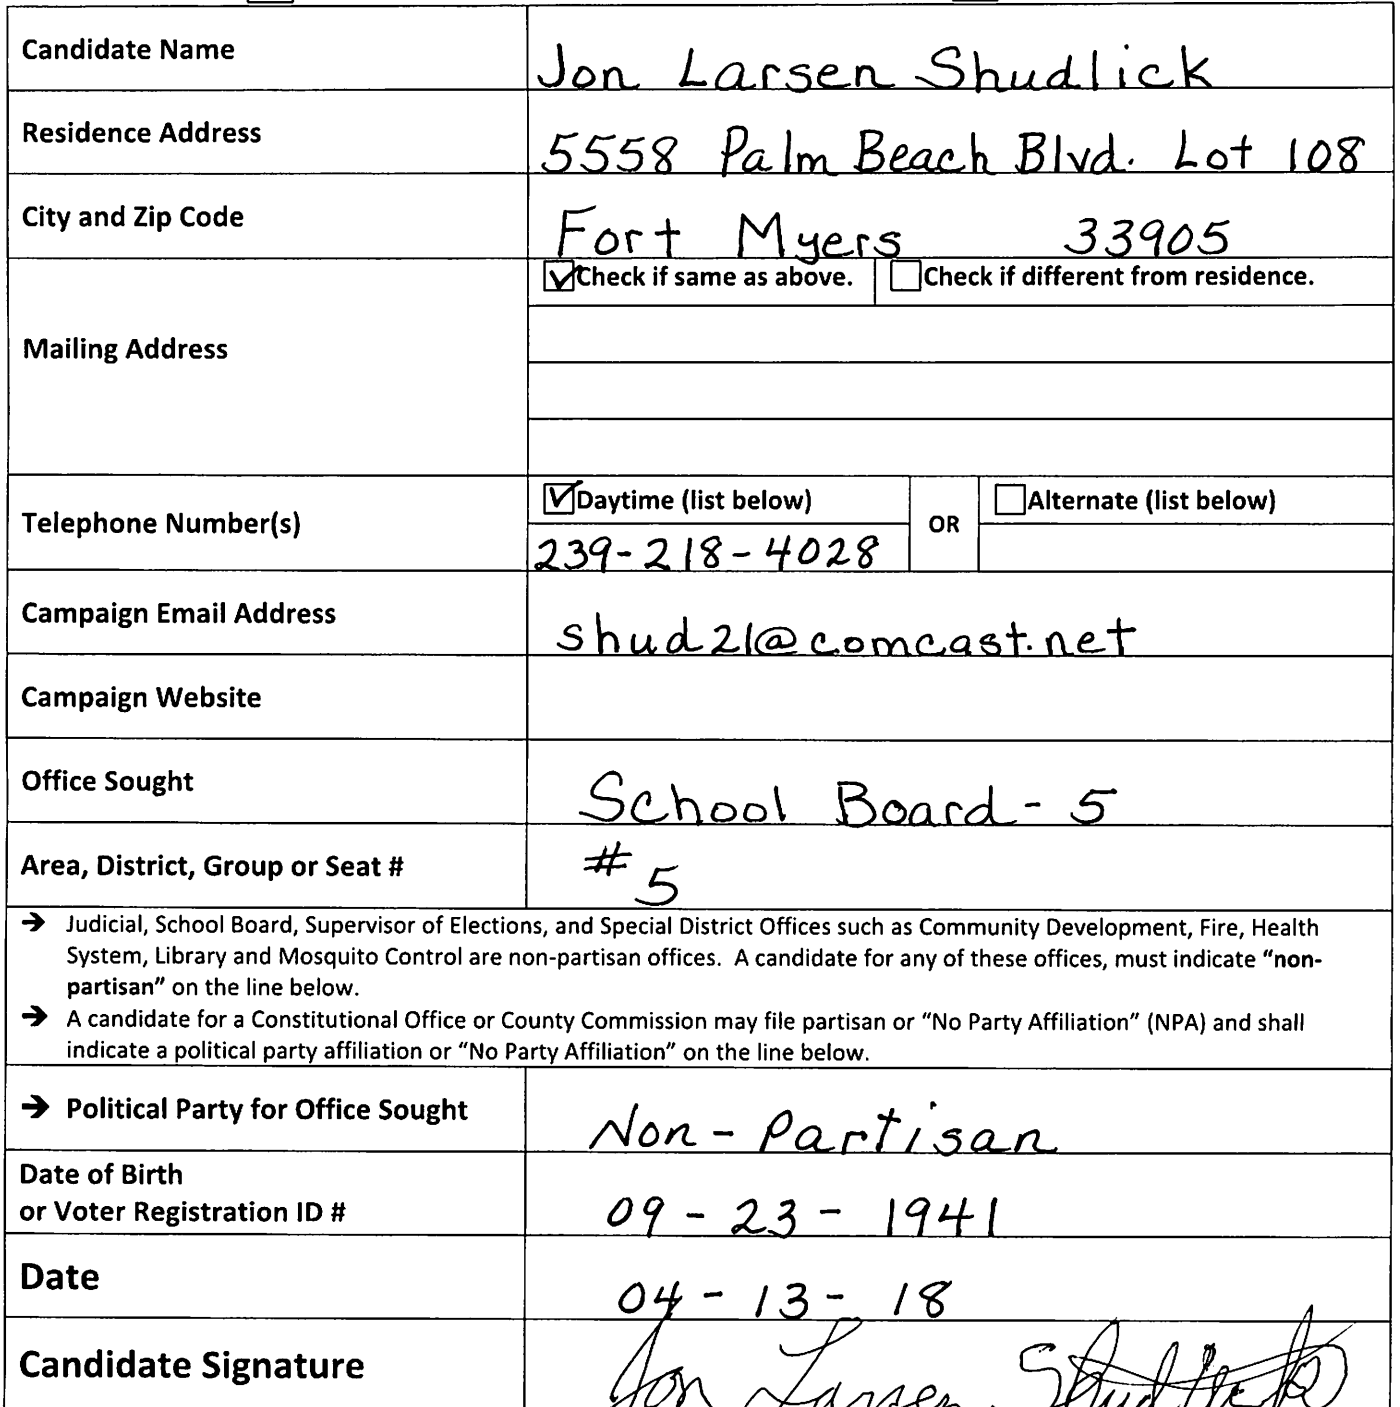 Candidate Name
Jon Larsen Shudlick
Residence Address
5558 Palm Beach Blvd. Lot 108
City and Zip Code
Fort Myers 33905
Mailing Address
Check if same as above. Check if different from residence.
Telephone Number(s)
Daytime (list below) OR Alternate (list below)
239-218-4028
Campaign Email Address
shud21@comcast.net
Campaign Website
Office Sought
School Board - 5
Area, District, Group or Seat #
# 5
→ Judicial, School Board, Supervisor of Elections, and Special District Offices such as Community Development, Fire, Health
System, Library and Mosquito Control are non-partisan offices. A candidate for any of these offices, must indicate "non-
partisan" on the line below.
→ A candidate for a Constitutional Office or County Commission may file partisan or "No Party Affiliation" (NPA) and shall
indicate a political party affiliation or "No Party Affiliation" on the line below.
→ Political Party for Office Sought
Non - Partisan
Date of Birth
or Voter Registration ID #
09 - 23 - 1941
Date
04 - 13 - 18
Candidate Signature
Jon Larsen Shudlick